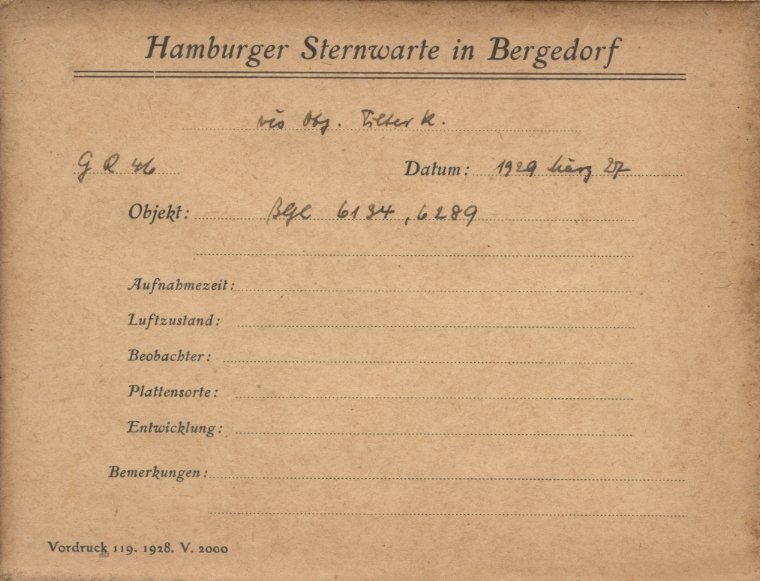 Hamburger Sternwarte in Bergedorf
vis Obj. Filter R.
G R 46 Datum: 1929 März 27
Objekt: 6134, 6289
Aufnahmezeit:
Luftzustand:
Beobachter:
Plattensorte:
Entwicklung:
Bemerkungen:
Vordruck 119. 1928. V. 2000